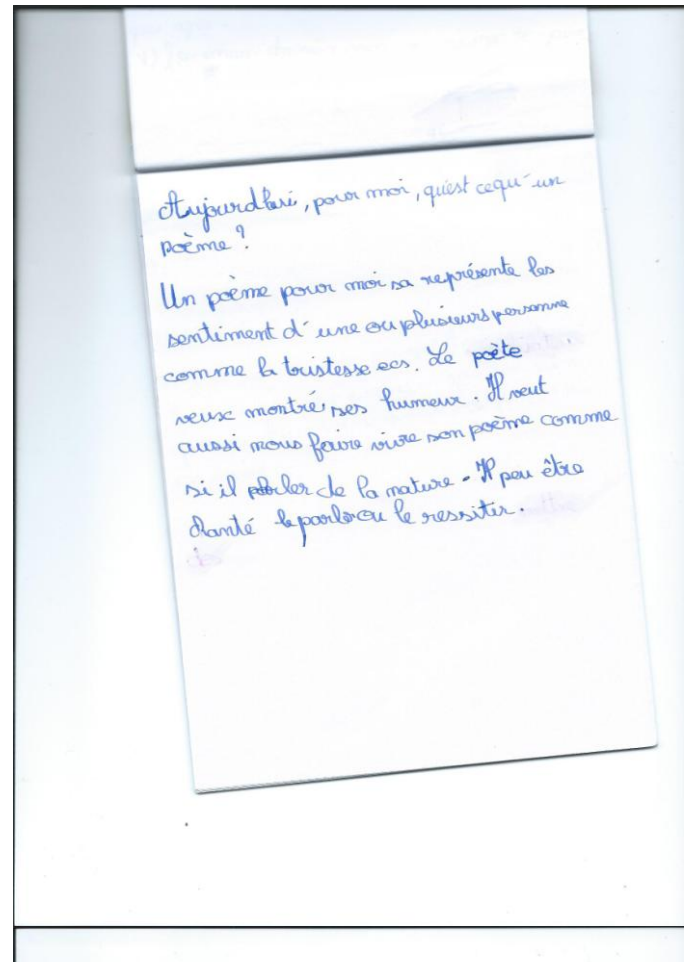 Aujourd'hui, pour moi, qu'est cequ'un
poème ?
Un poème pour moi sa représente les
sentiment d'une ou plusieurs personne
comme la tristesse ecs. Le poète
veux montré ses humeur. Il veut
aussi nous faire vivre son poème comme
si il parler de la nature - Il peu être
chanté le parler ou le ressiter.